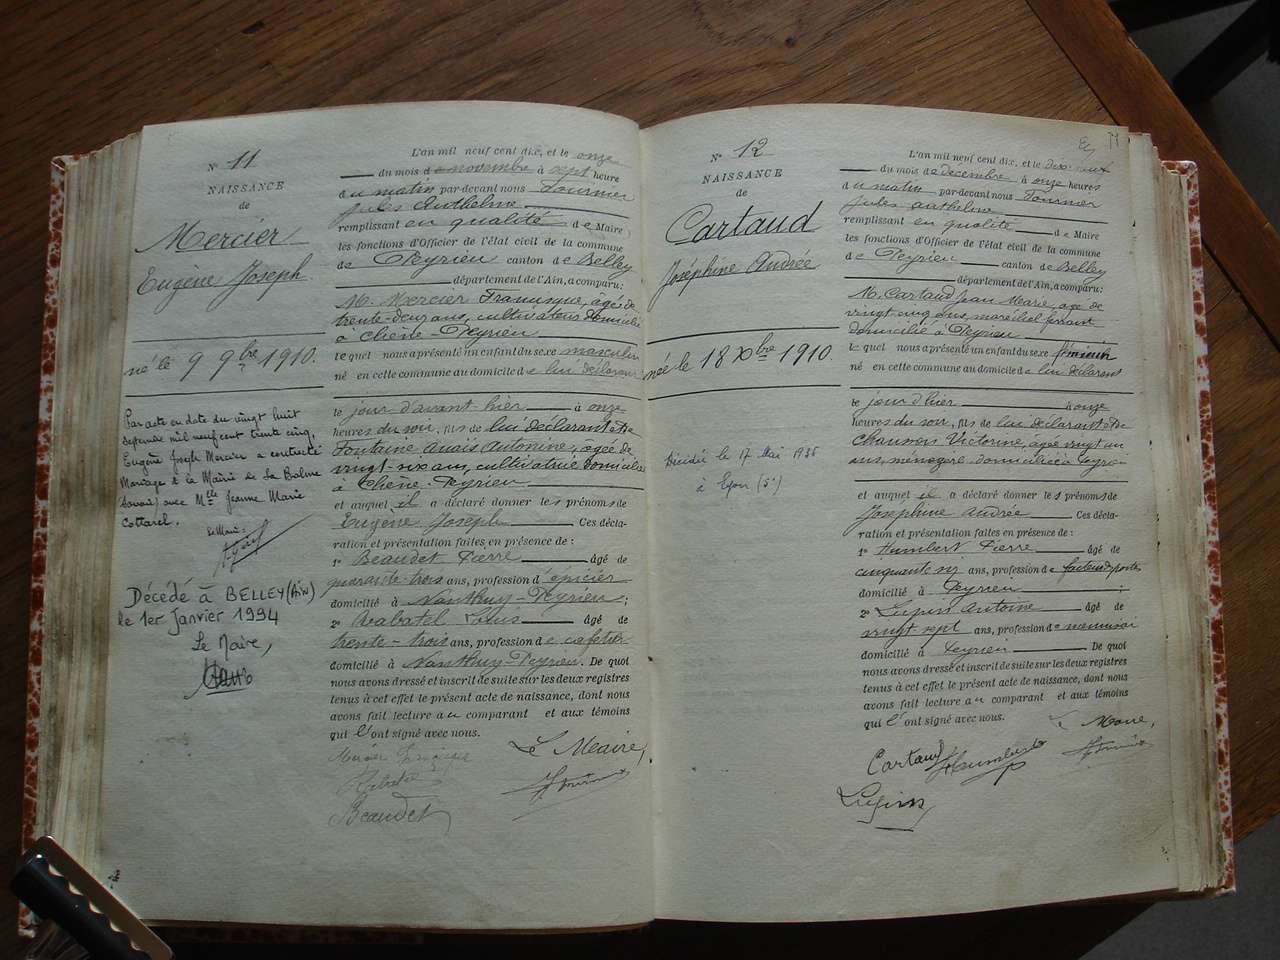 N° 11
NAISSANCE
de
Mercier
Eugène Joseph
né le 9 9bre 1910.
Par acte en date du vingt huit
septembre mil neuf cent trente cinq,
Eugène Joseph Mercier a contracté
Mariage à la Mairie de La Balme
Savoie) avec Mlle Jeanne Marie
Cottarel.
Le Maire:
Décédé à BELLEY (Ain)
le 1er Janvier 1994
Le Maire,
L'an mil neuf cent dix, et le onze
du mois de novembre à sept heure
du matin par-devant nous Fournier
Jules Anthelme
remplissant en qualité de Maire
les fonctions d'Officier de l'état civil de la commune
de Peyrieu canton de Belley
département de l'Ain, a comparu:
M. Mercier Franisque, agé de
trente-deux ans, cultivateur domicilié
à Chêne-Peyrieu
lequel nous a présenté un enfant du sexe masculin
né en cette commune au domicile de lui déclarant
le jour d'avant hier à onze
heures du soir, fils de lui déclarant et de
Fontaine Anaïs Antonine, agée de
vingt-six ans, cultivatrice domiciliée
à Chêne-Peyrieu
et auquel il a déclaré donner les prénoms de
Eugène Joseph Ces décla-
ration et présentation faites en présence de :
1° Beaudet Pierre âgé de
quarante-trois ans, profession d'épicier
domicilié à Nanthuy-Peyrieu;
2° Rabatel Louis âgé de
trente-trois ans, profession de cafetier
domicilié à Nanthuy-Peyrieu. De quoi
nous avons dressé et inscrit de suite sur les deux registres
tenus à cet effet le présent acte de naissance, dont nous
avons fait lecture au comparant et aux témoins
qui l'ont signé avec nous.
Le Maire,
Beaudet
N° 12
NAISSANCE
de
Cartaud
Joséphine Andrée
née le 18 Xbre 1910.
Décédée le 17 Mai 1936
à Lyon (5e)
L'an mil neuf cent dix, et le dix-neuf
du mois de décembre à onze heures
du matin par-devant nous Fournier
Jules Anthelme
remplissant en qualité de Maire
les fonctions d'Officier de l'état civil de la commune
de Peyrieu canton de Belley
département de l'Ain, a comparu:
M. Cartaud Jean Marie, agé de
vingt cinq ans, maréchal ferrant
domicilié à Peyrieu
lequel nous a présenté un enfant du sexe féminin
né en cette commune au domicile de lui déclarant
le jour d'hier à onze
heures du soir, fils de lui déclarant et de
Chausson Victorine, agée vingt un
ans, ménagère domiciliée à Peyrieu
et auquel il a déclaré donner les prénoms de
Joséphine Andrée Ces décla-
ration et présentation faites en présence de :
1° Humbert Pierre âgé de
cinquante six ans, profession de facteur des postes,
domicilié à Peyrieu ;
2° Lupin Antoine âgé de
vingt sept ans, profession de menuisier
domicilié à Peyrieu De quoi
nous avons dressé et inscrit de suite sur les deux registres
tenus à cet effet le présent acte de naissance, dont nous
avons fait lecture au comparant et aux témoins
qui l'ont signé avec nous.
Le Maire,
Cartaud Humbert
Lupin